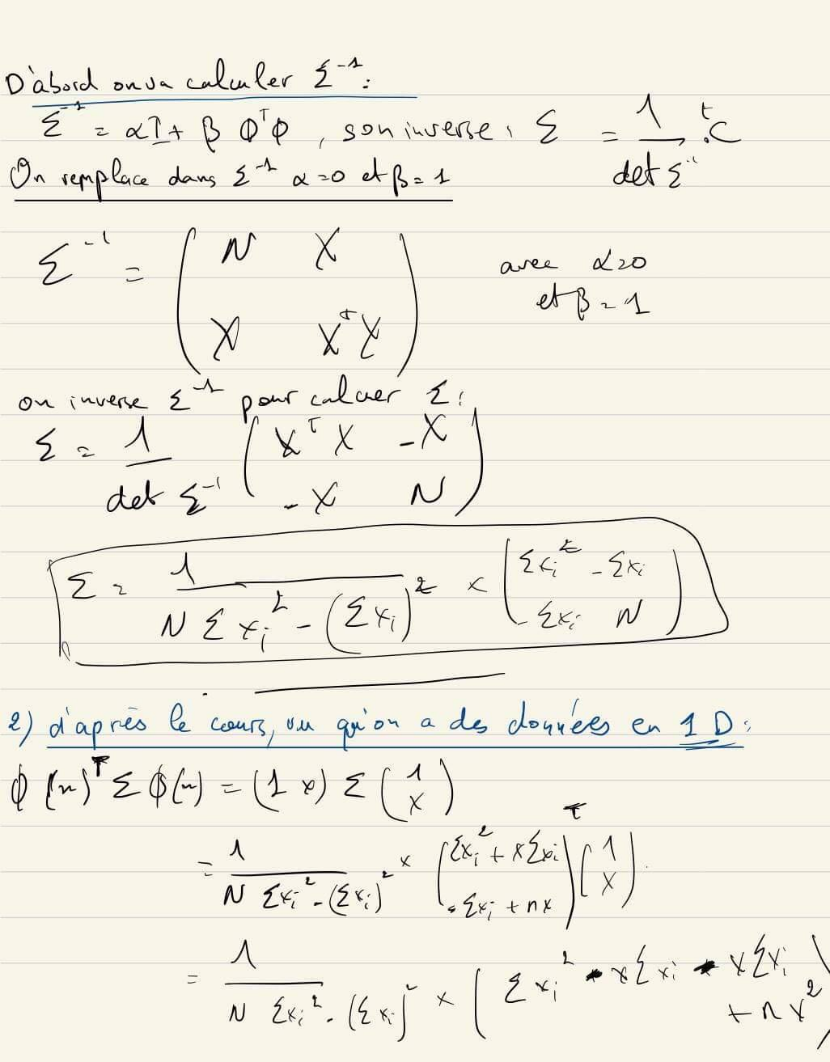 D'abord on va calculer Σ⁻¹:
Σ⁻¹ = αI + β Φᵀφ , son inverse : Σ = 1/det Σ⁻¹ . ᵗC
On remplace dans Σ⁻¹ α=0 et β=1
Σ⁻¹ = ( N X ; X XᵀX ) avec α=0 et β=1
on inverse Σ⁻¹ pour calcuer Σ:
Σ = 1/det Σ⁻¹ ( XᵀX -X ; -X N )
Σ = 1/(N Σxi² - (Σxi)²) × ( Σxi² -Σxi ; -Σxi N )
2) d'après le cours, vu qu'on a des données en 1D:
ϕ(x)ᵀ Σ ϕ(x) = (1 x) Σ (1 ; x)
= 1/(N Σxi² - (Σxi)²) × ( Σxi² + xΣxi ; -Σxi + nx )ᵀ (1 ; x).
= 1/(N Σxi² - (Σxi)²) × ( Σxi² - xΣxi - xΣxi + nx² )